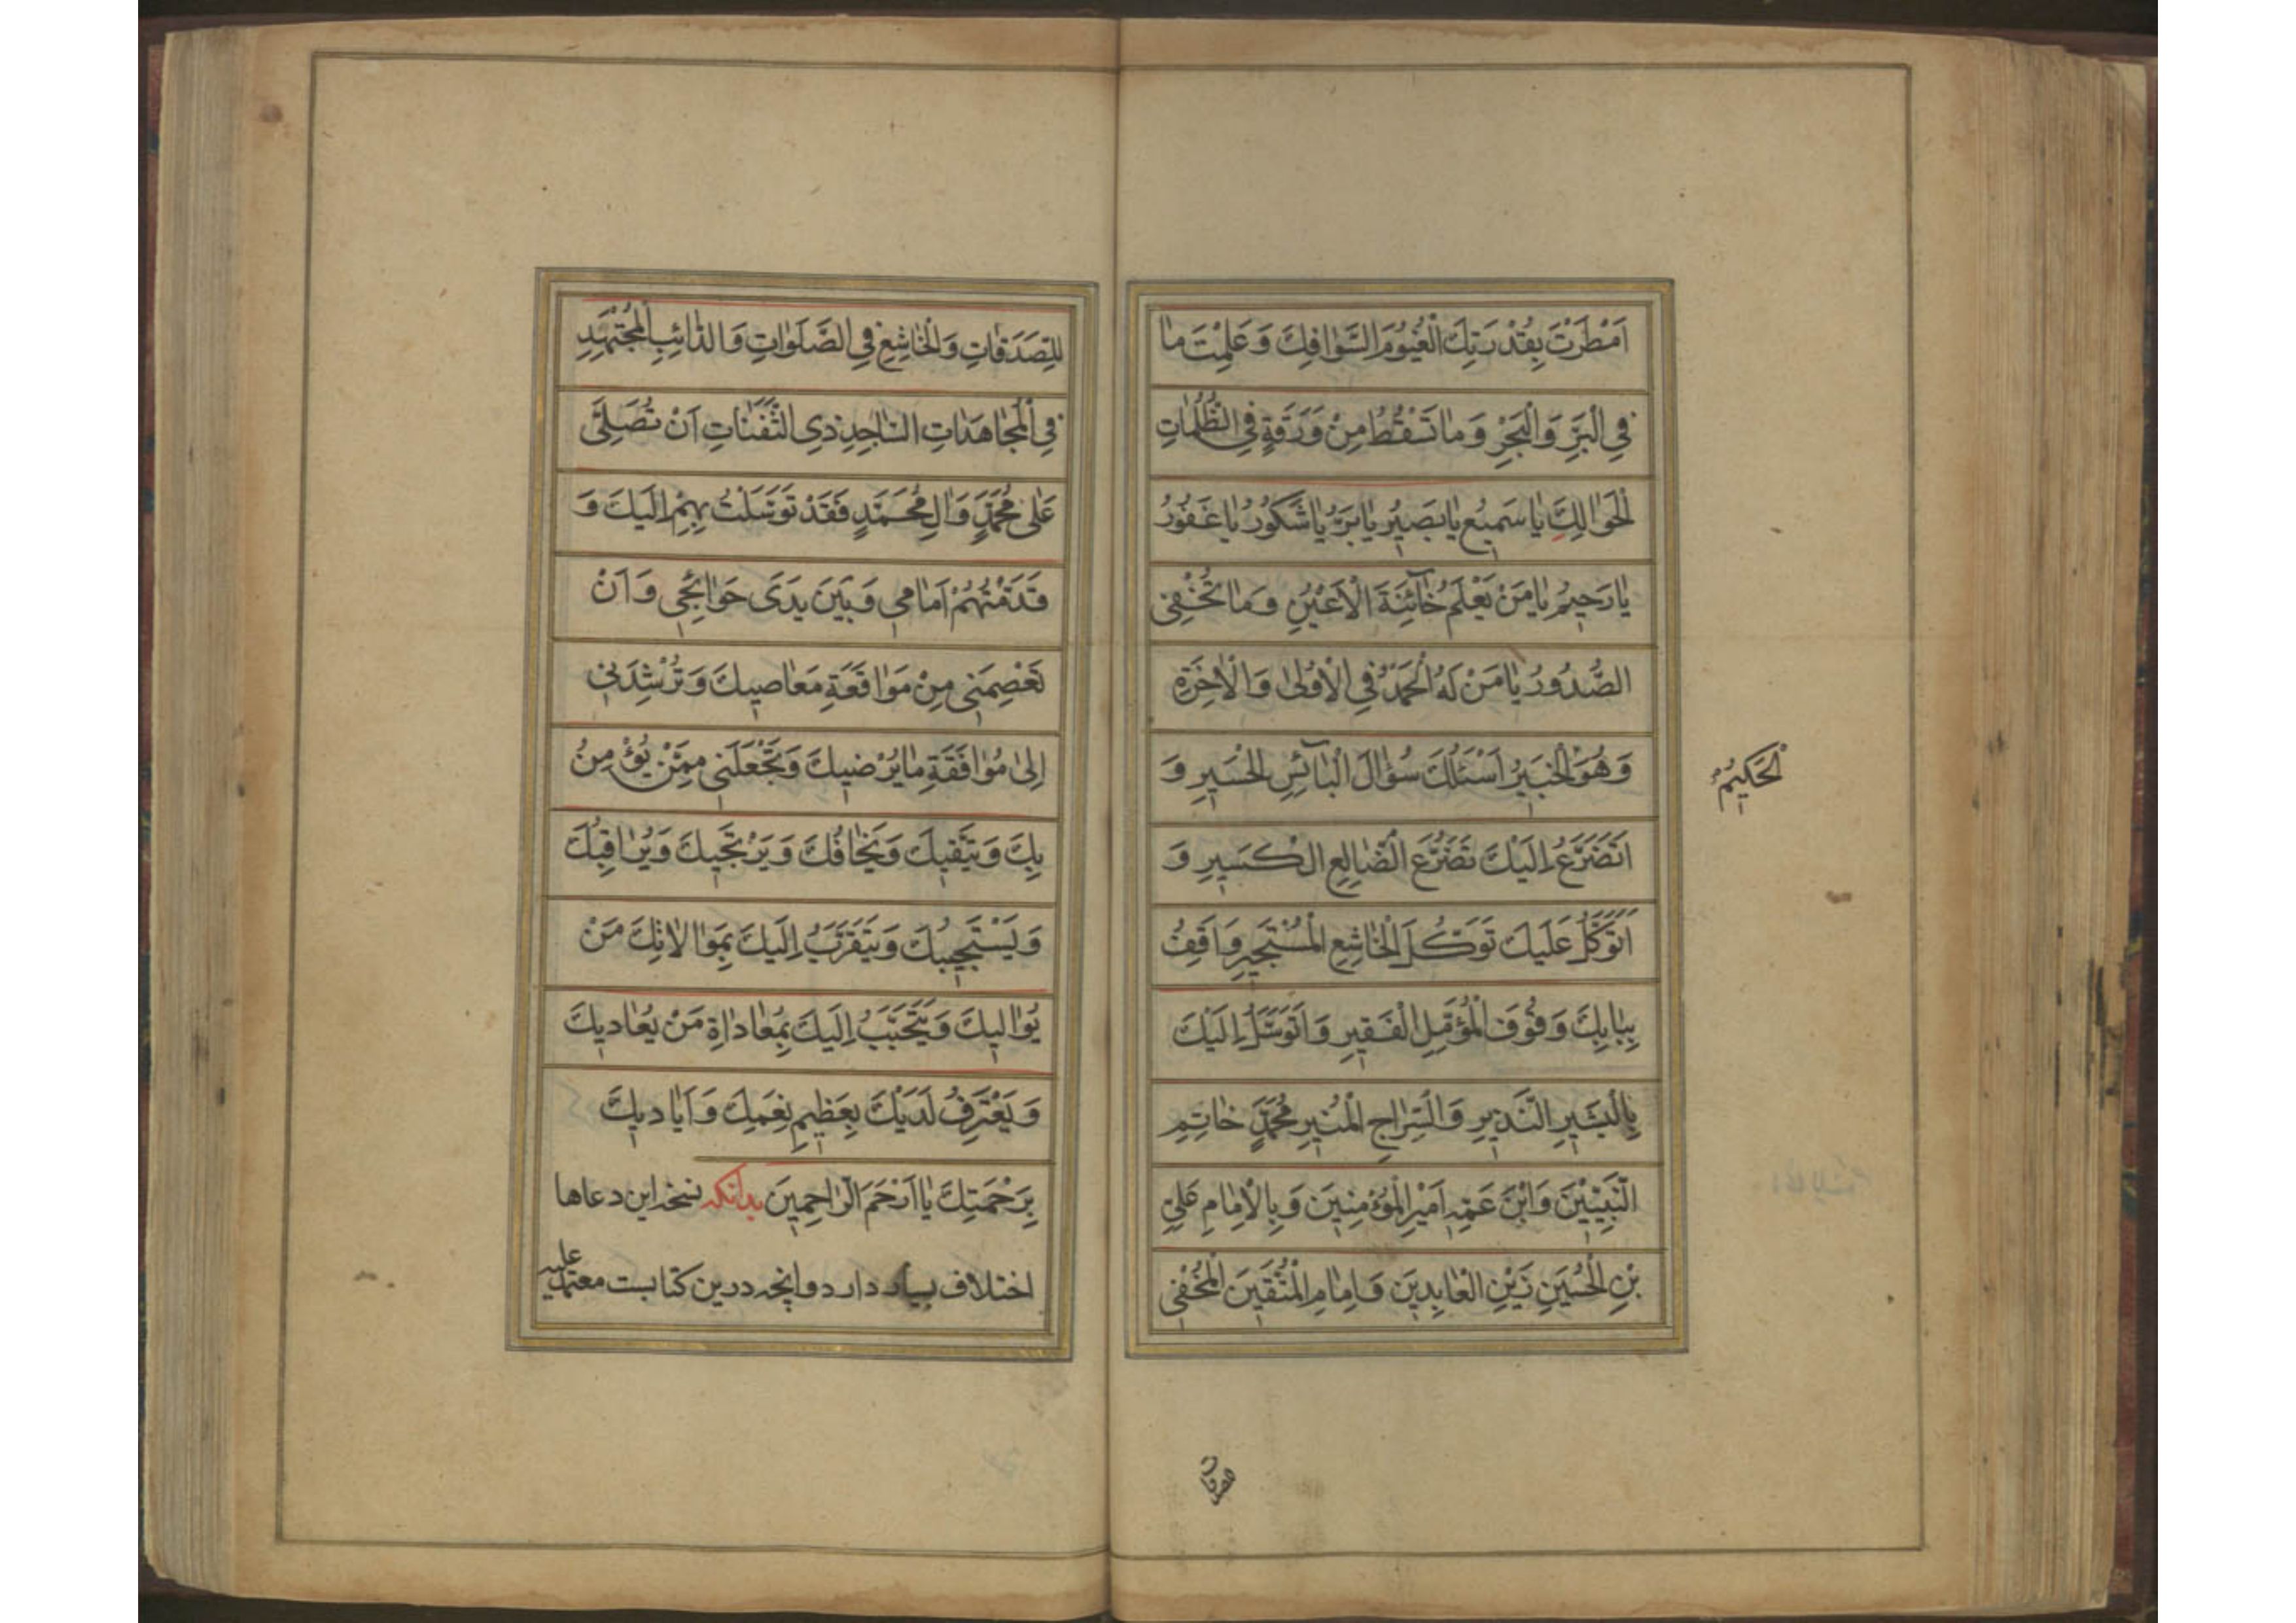 اَمْطَرْتَ بِقُدْرَتِكَ الْغُيُومَ السَّوٰافِكَ وَ عَلِمْتَ مٰا
فِي الْبَرِّ وَ الْبَحْرِ وَ مٰا تَسْقُطُ مِنْ وَرَقَةٍ فِي الظُّلُمٰاتِ
الْحَوٰالِكِ يٰا سَمِيعُ يٰا بَصِيرُ يٰا بَرُّ يٰا شَكُورُ يٰا غَفُورُ
يٰا رَحِيمُ يٰا مَنْ يَعْلَمُ خٰائِنَةَ الْاَعْيُنِ وَ مٰا تُخْفِي
الصُّدُورُ يٰا مَنْ لَهُ الْحَمْدُ فِي الْاُولىٰ وَ الْاٰخِرَةِ
وَ هُوَ الْخَبِيرُ اَسْئَلُكَ سُؤٰالَ الْبٰائِسِ الْحَسِيرِ وَ
الْحَكِيمُ
اَتَضَرَّعُ اِلَيْكَ تَضَرُّعَ الْضّٰالِعِ الْكَسِيرِ وَ
اَتَوَكَّلُ عَلَيْكَ تَوَكُّلَ الْخٰاشِعِ الْمُسْتَجِيرِ وَ اَقِفُ
بِبٰابِكَ وُقُوفَ الْمُؤَمِّلِ الْفَقِيرِ وَ اَتَوَسَّلُ اِلَيْكَ
بِالْبَشِيرِ النَّذِيرِ وَ السِّرٰاجِ الْمُنِيرِ مُحَمَّدٍ خٰاتِمِ
النَّبِيِّينَ وَ ابْنِ عَمِّهِ اَمِيرِ الْمُؤْمِنِينَ وَ بِالْاِمٰامِ عَلِيِّ
بْنِ الْحُسَيْنِ زَيْنِ الْعٰابِدِينَ وَ اِمٰامِ الْمُتَّقِينَ الْمُخْفِي
للصدقات
لِلصَّدَقٰاتِ وَ الْخٰاشِعِ فِي الصَّلَوٰاتِ وَ الدّٰائِبِ الْمُجْتَهِدِ
فِي الْمُجٰاهَدٰاتِ السّٰاجِدِ ذِي الثَّفَنٰاتِ اَنْ تُصَلِّيَ
عَلىٰ مُحَمَّدٍ وَ اٰلِ مُحَمَّدٍ فَقَدْ تَوَسَّلْتُ بِهِمْ اِلَيْكَ وَ
قَدَّمْتُهُمْ اَمٰامِي وَ بَيْنَ يَدَيْ حَوٰائِجِي وَ اَنْ
تَعْصِمَنِي مِنْ مَوٰاقَعَةِ مَعٰاصِيكَ وَ تُرْشِدَنِي
اِلىٰ مُوٰافَقَةِ مٰا يُرْضِيكَ وَ تَجْعَلَنِي مِمَّنْ يُؤْمِنُ
بِكَ وَ يَتَّقِيكَ وَ يَخٰافُكَ وَ يَرْتَجِيكَ وَ يُرٰاقِبُكَ
وَ يَسْتَجِيبُكَ وَ يَتَقَرَّبُ اِلَيْكَ بِمُوٰالاٰتِكَ مَنْ
يُوٰالِيكَ وَ يَتَحَبَّبُ اِلَيْكَ بِمُعٰادٰاةِ مَنْ يُعٰادِيكَ
وَ يَعْتَرِفُ لَدَيْكَ بِعَظِيمِ نِعَمِكَ وَ اَيٰادِيكَ
بِرَحْمَتِكَ يٰا اَرْحَمَ الرّٰاحِمِينَ بدانكه نسخه اين دعاها
اختلاف بسيار دارد و انچه درين كتابست معتمد عليه